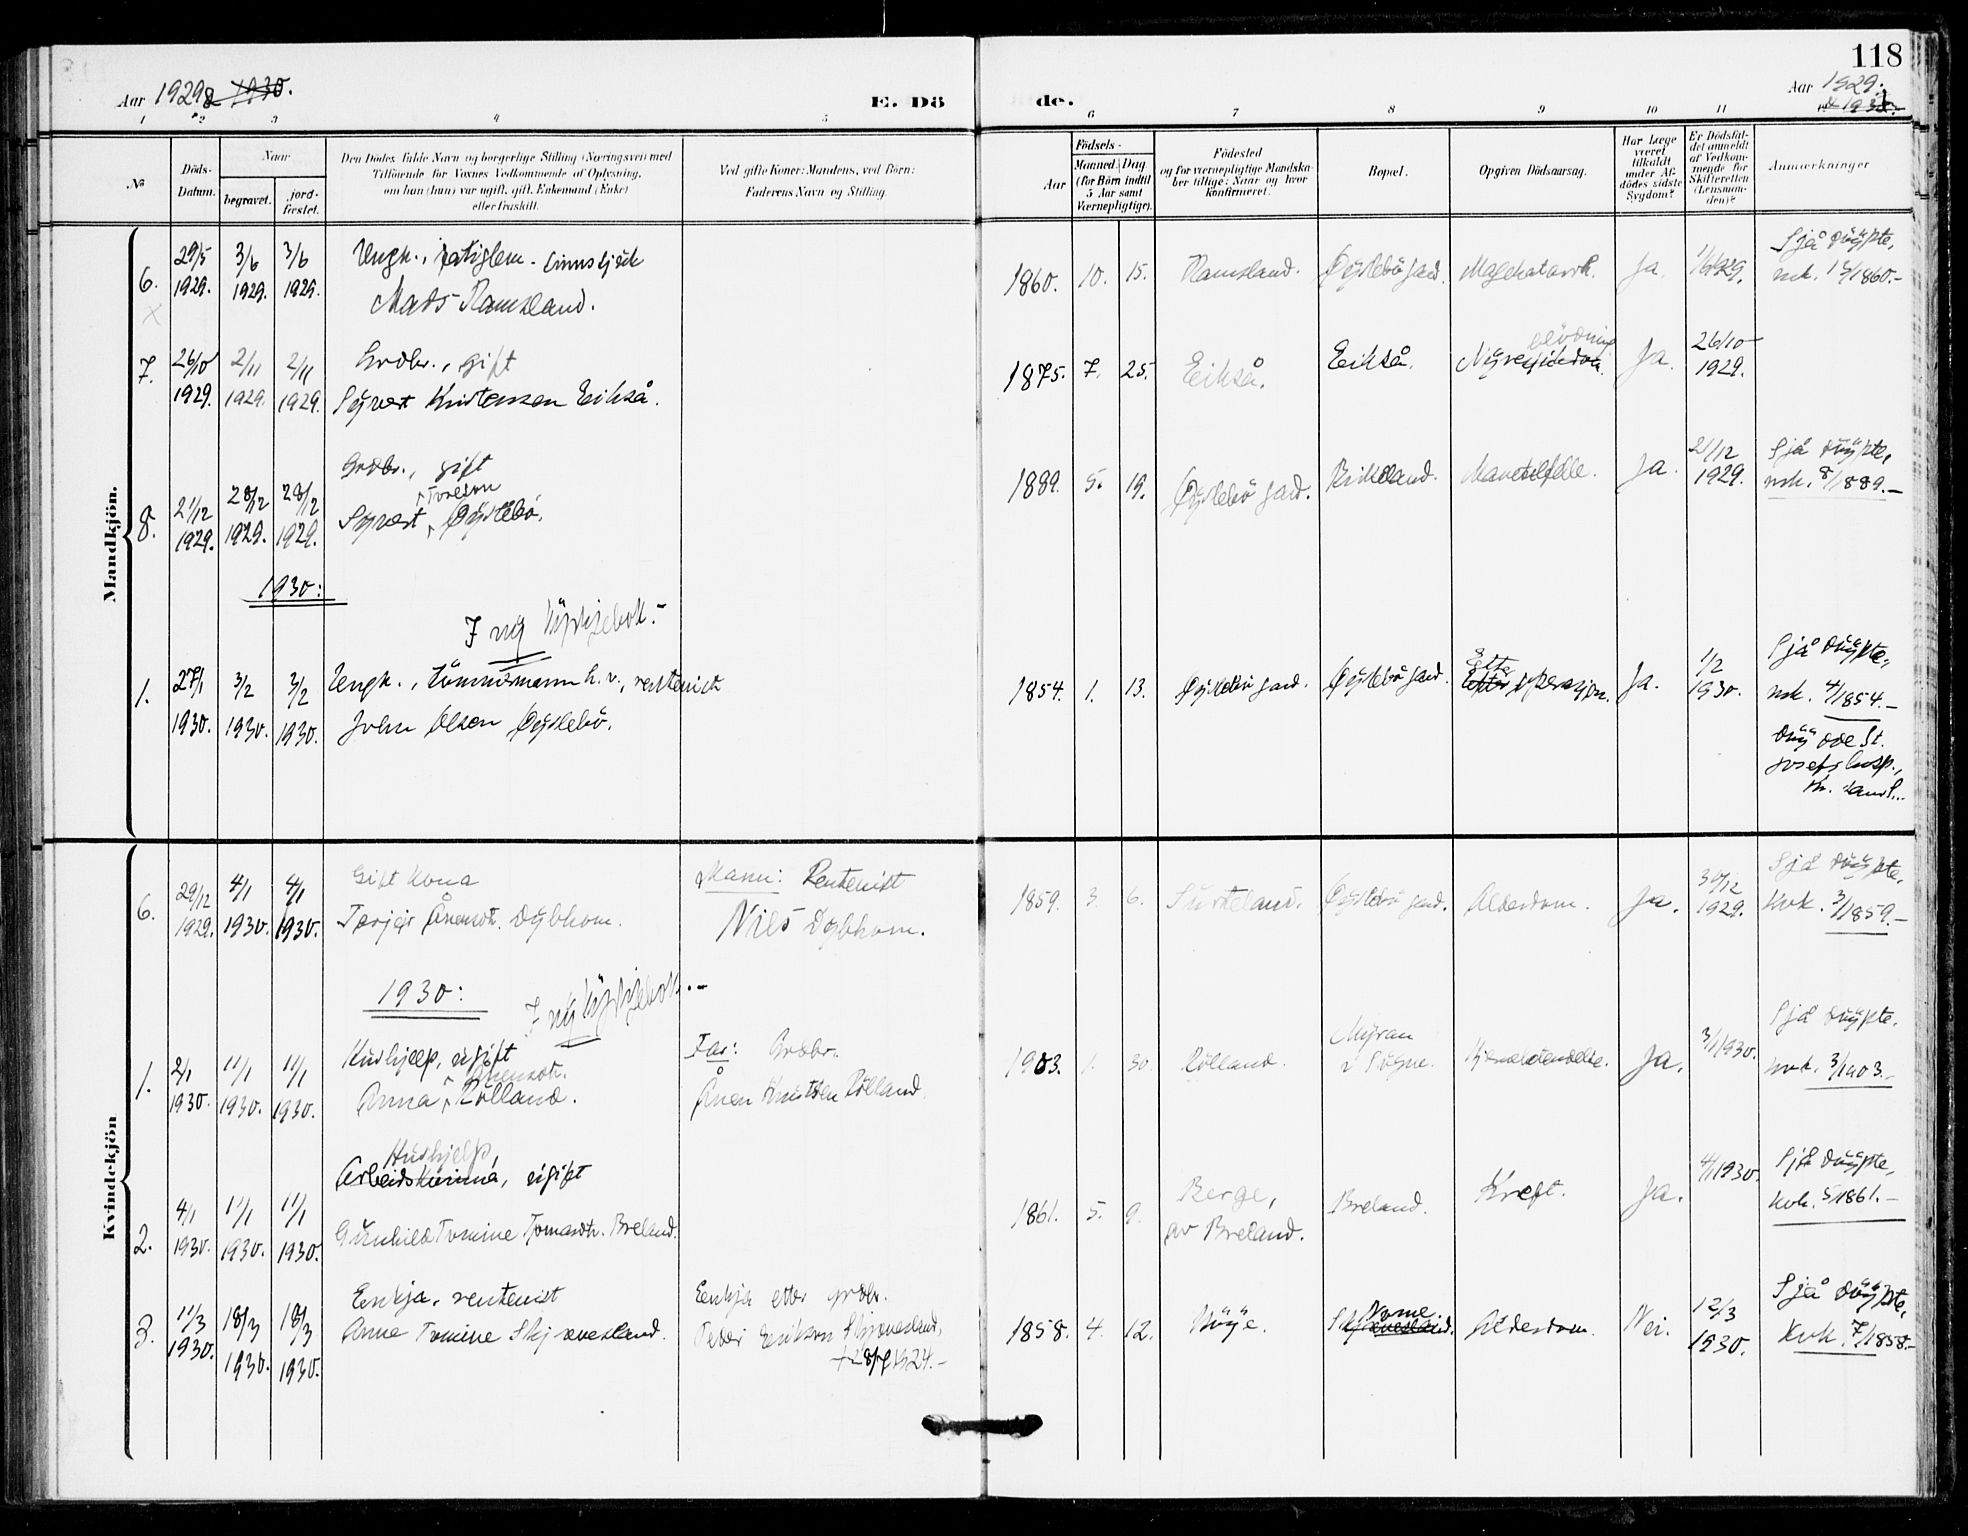 118
Aar 1929 & 1930.
E. Dö
de.
Aar 1929.
1930.
1 2 3 4 5 6 7 8 9 10 11
No
Döds-Datum.
Naar
begravet.
jord-fæstet.
Den Dödes fulde Navn og borgerlige Stilling (Næringsvei) med
Tilföiende for Voxnes Vedkommende af Oplysning,
om han (hun) var ugift, gift, Enkemand (Enke)
eller fraskilt.
Ved gifte Koner: Mandens, ved Börn:
Faderens Navn og Stilling.
Födsels-
Aar
Maaned. Dag
(for Börn indtil 5 Aar samt Værnepligtige).
Födested
og for værnepligtige Mandskaber tillige: Naar og hvor konfirmeret.
Bopæl.
Opgiven Dödsaarsag.
Har Læge været tilkaldt under Afdödes sidste Sygdom?
Er Dödsfaldet anmeldt af Vedkommende for Skifteretten (Lensmanden)?
Anmærkninger
Mandkjön.
6. 29/5 1929. 3/6 1929. 3/6 1929.
Ungk., fatiglem. sinnssjuk
Mads Ramsland.
1860. 10. 15. Ramsland. Øyslebø gard. Magekatarrh. Ja. 1/6 1929.
Sjå døypte, mk. 15/1860.-
7. 26/10 1929. 2/11 1929. 2/11 1929.
Grdbr., gift
Syvert Kristensen Eikså.
1875. 7. 25. Eikså. Eikså. Nyre blødning Ja. 26/10 1929.
8. 21/12 1929. 28/12 1929. 28/12 1929.
Grdbr., gift
Syvert Toreson Øyslebø.
1889. 5. 19. Øyslebø gard. Ja. 21/12 1929.
Sjå døypte, mk. 8/1889.-
1930:
I ny kyrkjebok.-
1. 27/1 1930. 3/2 1930. 3/2 1930.
Ungk., tømmermann h.v., rentenist
John Olsen Øyslebø.
1854. 1. 13. Øyslebø gard. Øyslebø gard. Etter operasjon. Ja. 1/2 1930.
Sjå døypte, mk. 4/1854.-
Døydde St. Josefs hosp., Kr. sand S.
Kvindekjön
6. 29/12 1929. 4/1 1930. 4/1 1930.
Gift kona
Torjer Ånensdt. Dybhom.
Mann: Rentenist
Nils Dybhom.
1859. 3. 6. Øyslebø gard. Alderdom. Ja. 30/12 1929.
Sjå døypte, kvk. 3/1859.-
1930:
I ny kyrkjebok.-
1. 2/1 1930. 11/1 1930. 11/1 1930.
Hushjelp, ugift
Anna Ånensdt. Rølland.
Far: Grdbr.
Ånen Knutsen Rølland.
1903. 1. 30. Rølland. Myran i Søgne. Ja. 3/1 1930.
Sjå døypte, kvk. 3/1903.-
2. 4/1 1930. 11/1 1930. 11/1 1930.
Hushjelp,
Arbeidskvinna, ugift
Gunhild Tomine Tomasdt. Breland.
1861. 5. 9. Berge, av Breland. Breland. Kreft. Ja. 4/1 1930.
Sjå døypte, kvk. 5/1861.-
3. 11/3 1930. 18/3 1930. 18/3 1930.
Enkja, rentenist
Anne Tomine Skjævesland.
Enkja etter grdbr.
Peder Erikson Skjævesland,
1858. 4. 12. Høye. Nome Skjævesland. Alderdom. Nei. 12/3 1930.
Sjå døypte, kvk. 7/1858.-